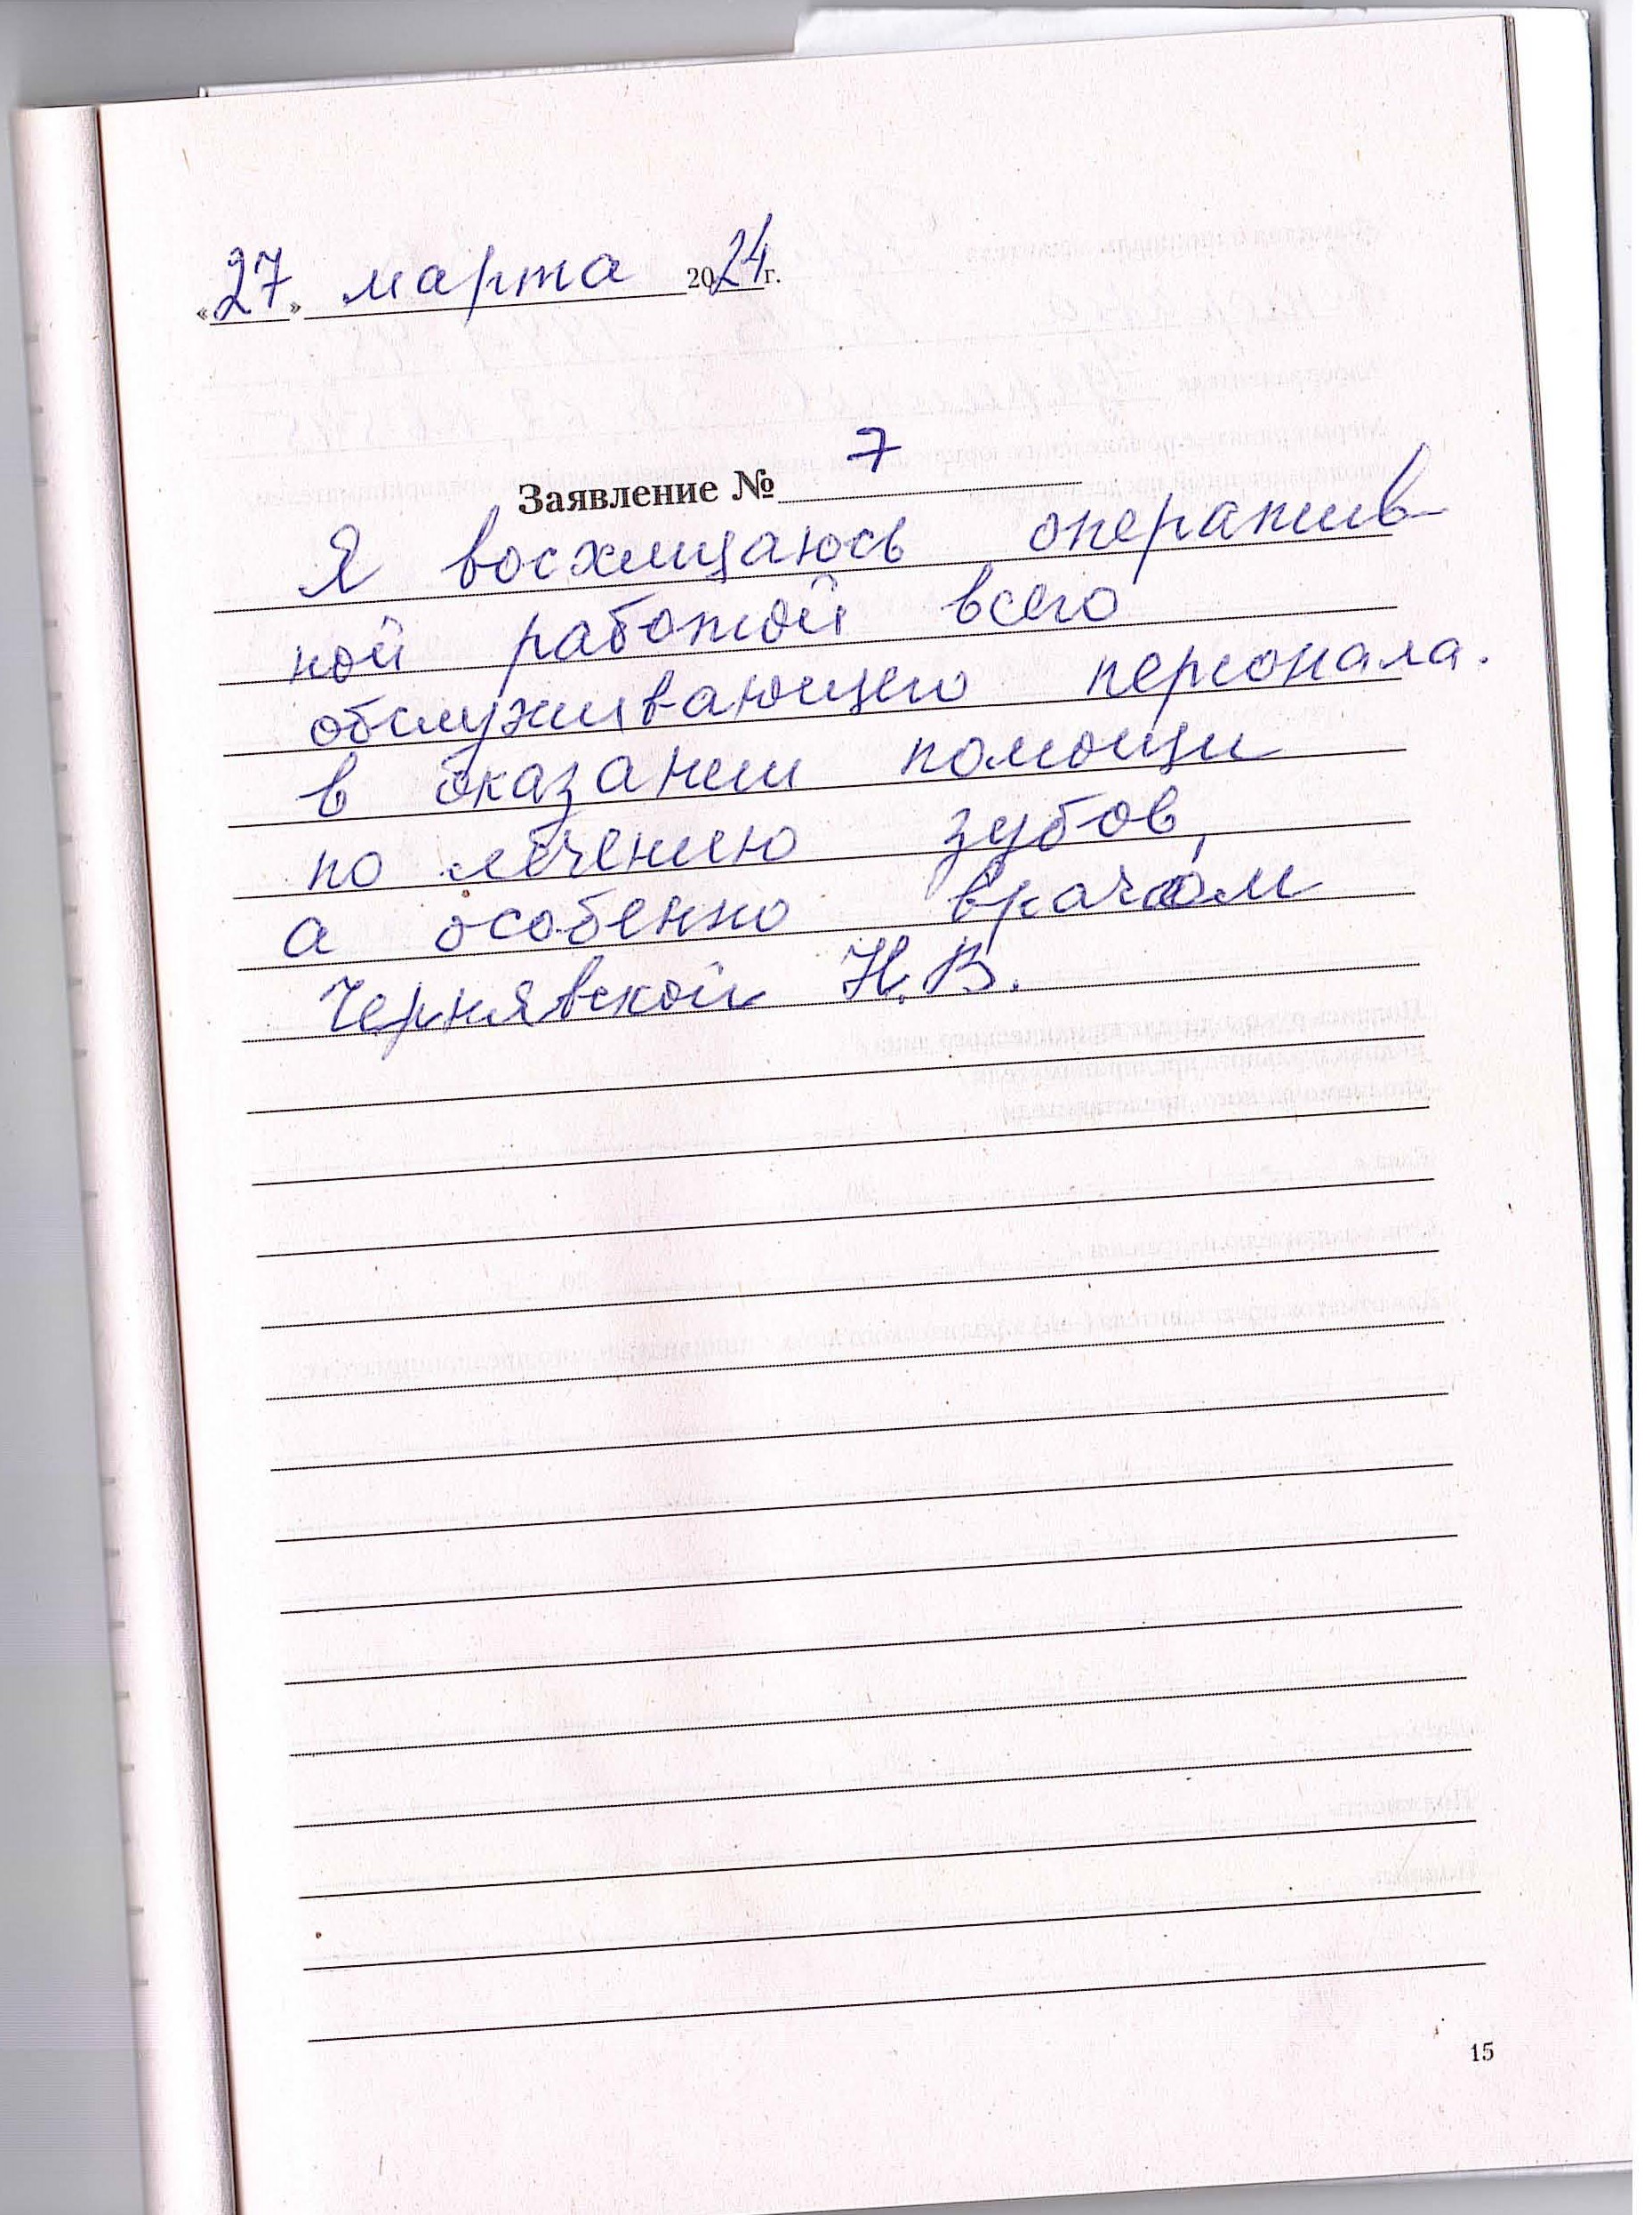 «27» марта 2024г.
Заявление № 7
Я восхищаюсь оператив-
ной работой всего
обслуживающего персонала.
в оказании помощи
по лечению зубов,
а особенно врачом
Чернявской Н.В.
15